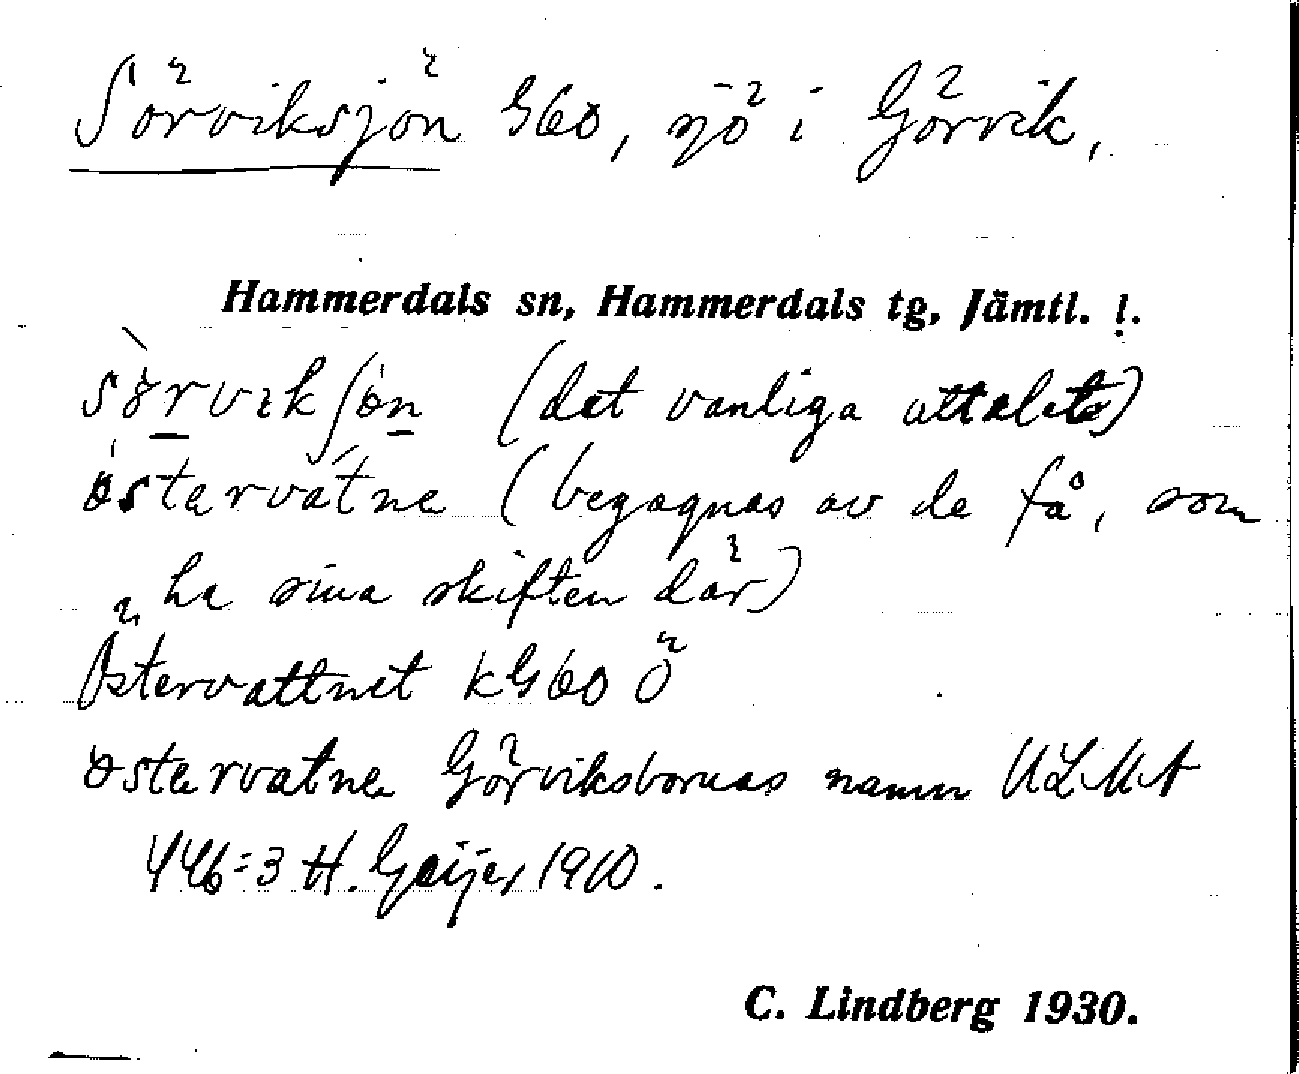 Sörviksjön G60, sjö i Görvik,
Hammerdals sn, Hammerdals tg, Jämtl. !.
sörvikʃön (det vanliga uttalet)
östervatne (begagnas av de få, som
ha sina skiften där)
Östervattnet kG60 Ö
östervatne Görviksbornas namn ULMA
446:3 H. Geijer 1910.
C. Lindberg 1930.